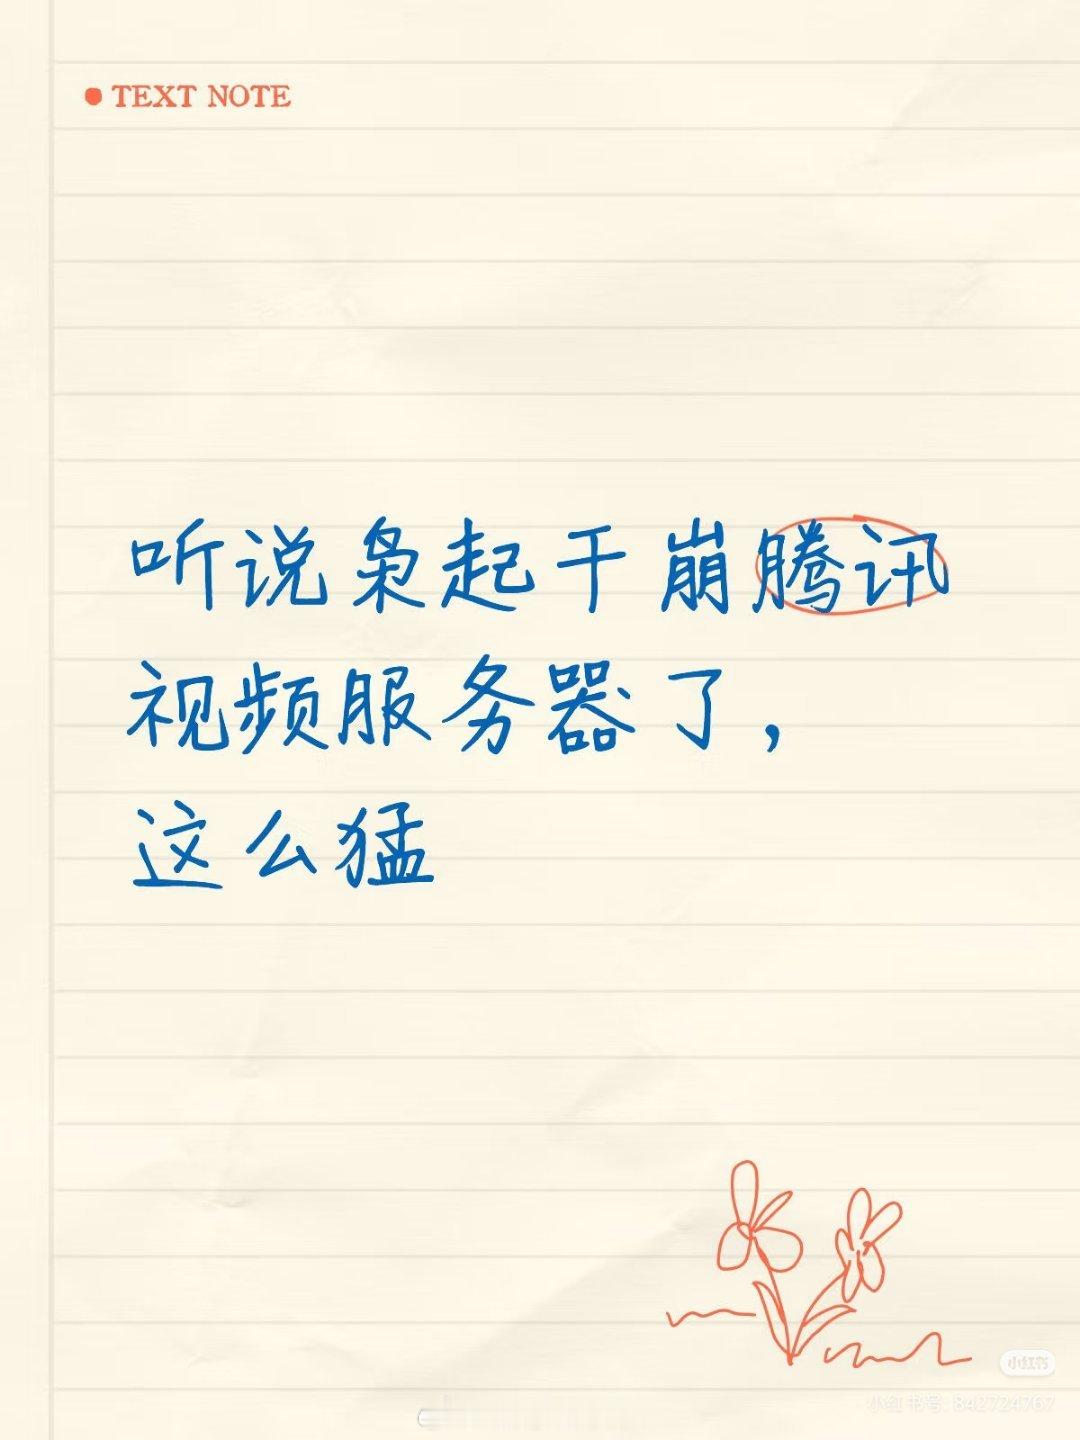 TEXT NOTE
听说枭起干崩腾讯
视频服务器了，
这么猛
小红书
小红书号：842724767